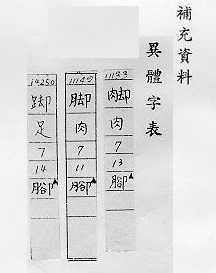 補充資料
異體字表
肉
7
13
腳
脚
肉
7
11
腳
14250
踋
足
7
14
腳